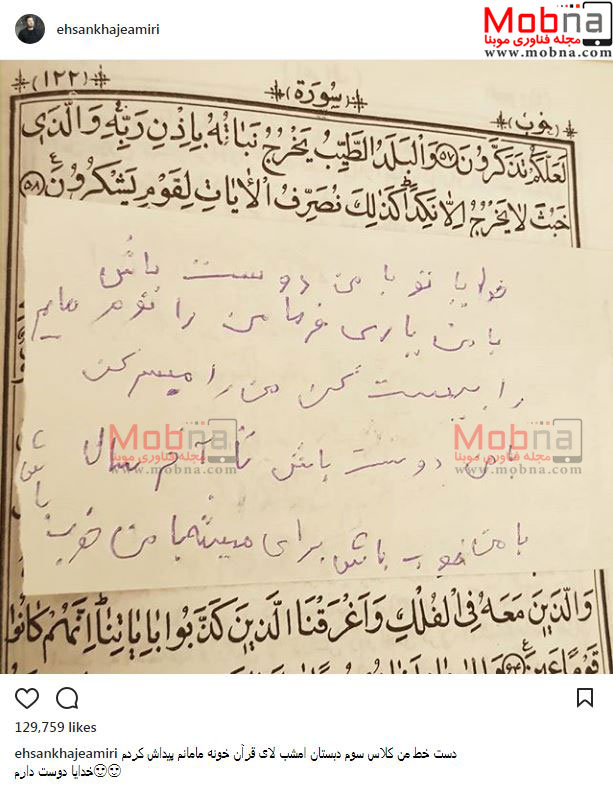 ehsankhajeamiri
Mobna
مجله فناوری موبنا
www.mobna.com
(۱۲۲)
(سورة)
(خوب)
لَعَلَّكُمْ تَذَكَّرُونَ ۵۷ وَالْبَلَدُ الطَّيِّبُ يَخْرُجُ نَبَاتُهُ بِاِذْنِ رَبِّهِ وَالَّذِى
خَبُثَ لَا يَخْرُجُ اِلَّا نَكِدًا كَذٰلِكَ نُصَرِّفُ الْاٰيَاتِ لِقَوْمٍ يَشْكُرُونَ ۵۸
خدایا تو با من دوست باش
با من یاری فرما من را
را کن من را میسر کن
Mobna
مجله فناوری موبنا
www.mobna.com
Mobna
مجله فناوری موبنا
www.mobna.com
با من دوست باش تا سال
با من خوب باش برای همیشه با من خوب باش
وَالَّذِينَ مَعَهُ فِى الْفُلْكِ وَاَغْرَقْنَا الَّذِينَ كَذَّبُوا بِاٰيَاتِنَا اِنَّهُمْ كَانُوا
قَوْمًا عَمِينَ ۶۴
129,759 likes
ehsankhajeamiri دست خط من کلاس سوم دبستان امشب لای قرآن خونه مامانم پیداش کردم
خدایا دوست دارم🙂🙂